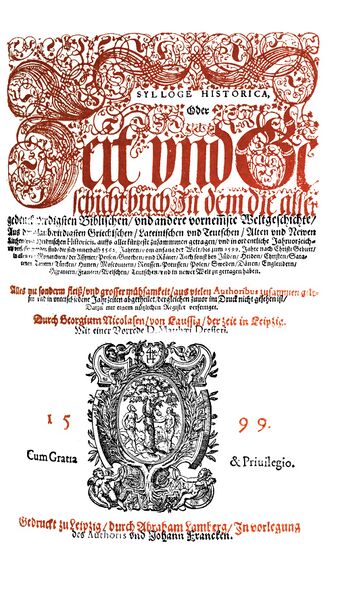 SYLLOGE HISTORICA,
Oder
Zeit und Ge
schichtbuch / In dem die aller
gedenckwirdigsten Biblischen / und andere vornemste Weltgeschichte /
Aus den glaubwirdigsten Griechischen / Lateinischen und Teutschen / Alten und Newen
Historicis, auffs aller kürtzeste zusammen getragen / und in ordentliche Jahrverzeich-
sind die sich innerhalb 5561. Jahren / von anfang der Welt bis zum 1599. Jahre
Monarchen / der Assyrer / Persen / Griechen / und Römer / Auch sonst den Jüden / Heiden / Christen / Sara-
Tattern / Türcken / Hunnen / Moscowitern / Reussen / Preussen / Polen / Schweden / Dänen / Engländern /
Hispaniern / Frantzosen / Welschen / Teutschen / und in newer Welt zu getragen haben.
Alles mit sonderm fleiß / und grosser mühsamkeit / aus vielen Authoribus zusammen gele-
sen und in unterschiedene Jahrzeiten abgetheilet / dergleichen zuvor im Druck nicht gesehen ist /
Darzu mit einem nützlichen Register verfertiget.
Durch Georgium Nicolasen / von Laussig / der zeit in Leipzig.
Mit einer Vorrede D. Matthæi Dresseri.
1599.
Cum Gratia & Priuilegio.
Gedruckt zu Leipzig / durch Abraham Lamberg / In vorlegung
des Authoris und Johann Francken.